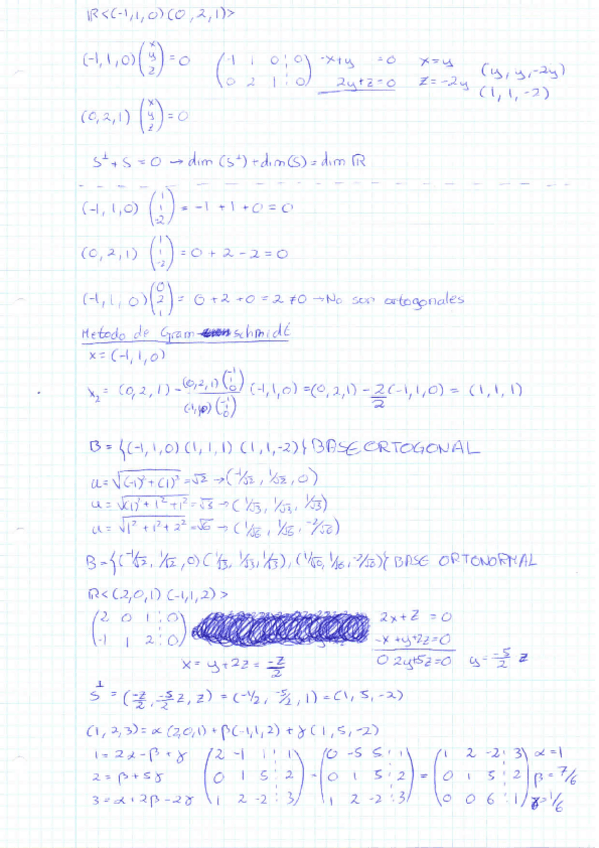 ℝ<(-1,1,0)(0,2,1)>
(-1,1,0)(x y z)=0 (-1 1 0 : 0 / 0 2 1 : 0) -x+y =0 x=y (y, y, -2y)
2y+z=0 z=-2y (1, 1, -2)
(0,2,1)(x y z)=0
S⊥+S=0 → dim(S⊥)+dim(S)=dim ℝ
(-1,1,0)(1 1 -2)= -1+1+0=0
(0,2,1)(1 1 -2)=0+2-2=0
(-1,1,0)(0 2 1)= 0+2+0=2≠0 → No son ortogonales
Metodo de Gram schmidt
x=(-1,1,0)
x₂= (0,2,1) - (0,2,1)(-1 1 0)/(-1,1,0)(-1 1 0) (-1,1,0)=(0,2,1) - 2/2(-1,1,0) = (1,1,1)
B={(-1,1,0)(1,1,1)(1,1,-2)} BASE ORTOGONAL
u=√(-1)²+(1)²=√2 → (-1/√2, 1/√2, 0)
u=√(1)²+1²+1²=√3 → (1/√3, 1/√3, 1/√3)
u=√1²+1²+2²=√6 → (1/√6, 1/√6, -2/√6)
B={(-1/√2, 1/√2, 0)(1/√3, 1/√3, 1/√3), (1/√6, 1/√6, -2/√6)} BASE ORTONORMAL
ℝ<(2,0,1)(-1,1,2)>
(2 0 1 : 0 / -1 1 2 : 0) 2x+z =0
-x+y+2z=0
x= y+2z = -z/2 0 2y+5z=0 y= -5/2 z
S⊥=(-z/2, -5/2 z, z) = (-1/2, -5/2, 1)=(1, 5, -2)
(1,2,3)=α(2,0,1)+β(-1,1,2)+γ(1,5,-2)
1=2α-β+γ (2 -1 1 : 1 / 0 1 5 : 2 / 1 2 -2 : 3) = (0 -5 5 : 1 / 0 1 5 : 2 / 1 2 -2 : 3) = (1 2 -2 : 3 / 0 1 5 : 2 / 0 0 6 : 1) α=1
2=β+5γ β=7/6
3=α+2β-2γ γ=1/6